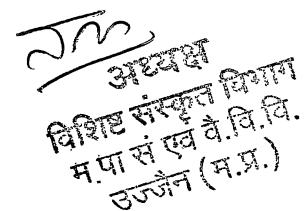 अध्यक्ष
विशिष्ट संस्कृत विभाग
म.पा सं एव वै.वि.वि.
उज्जैन (म.प्र.)